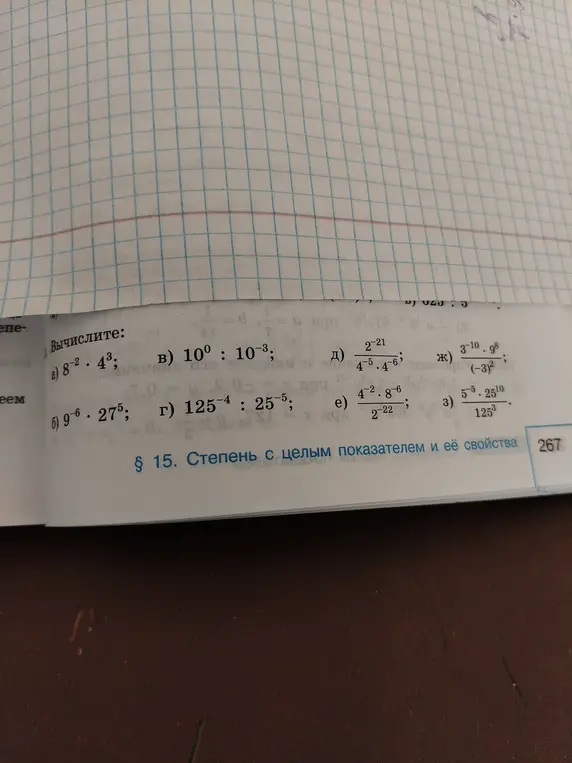 Вычислите:
а) 8⁻² · 4³; в) 10⁰ : 10⁻³; д) 2⁻²¹ / (4⁻⁵ · 4⁻⁶); ж) (3⁻¹⁰ · 9⁸) / (−3)²;
б) 9⁻⁶ · 27⁵; г) 125⁻⁴ : 25⁻⁵; е) (4⁻² · 8⁻⁶) / 2⁻²²; з) (5⁻⁵ · 25¹⁰) / 125³.
§ 15. Степень с целым показателем и её свойства 267